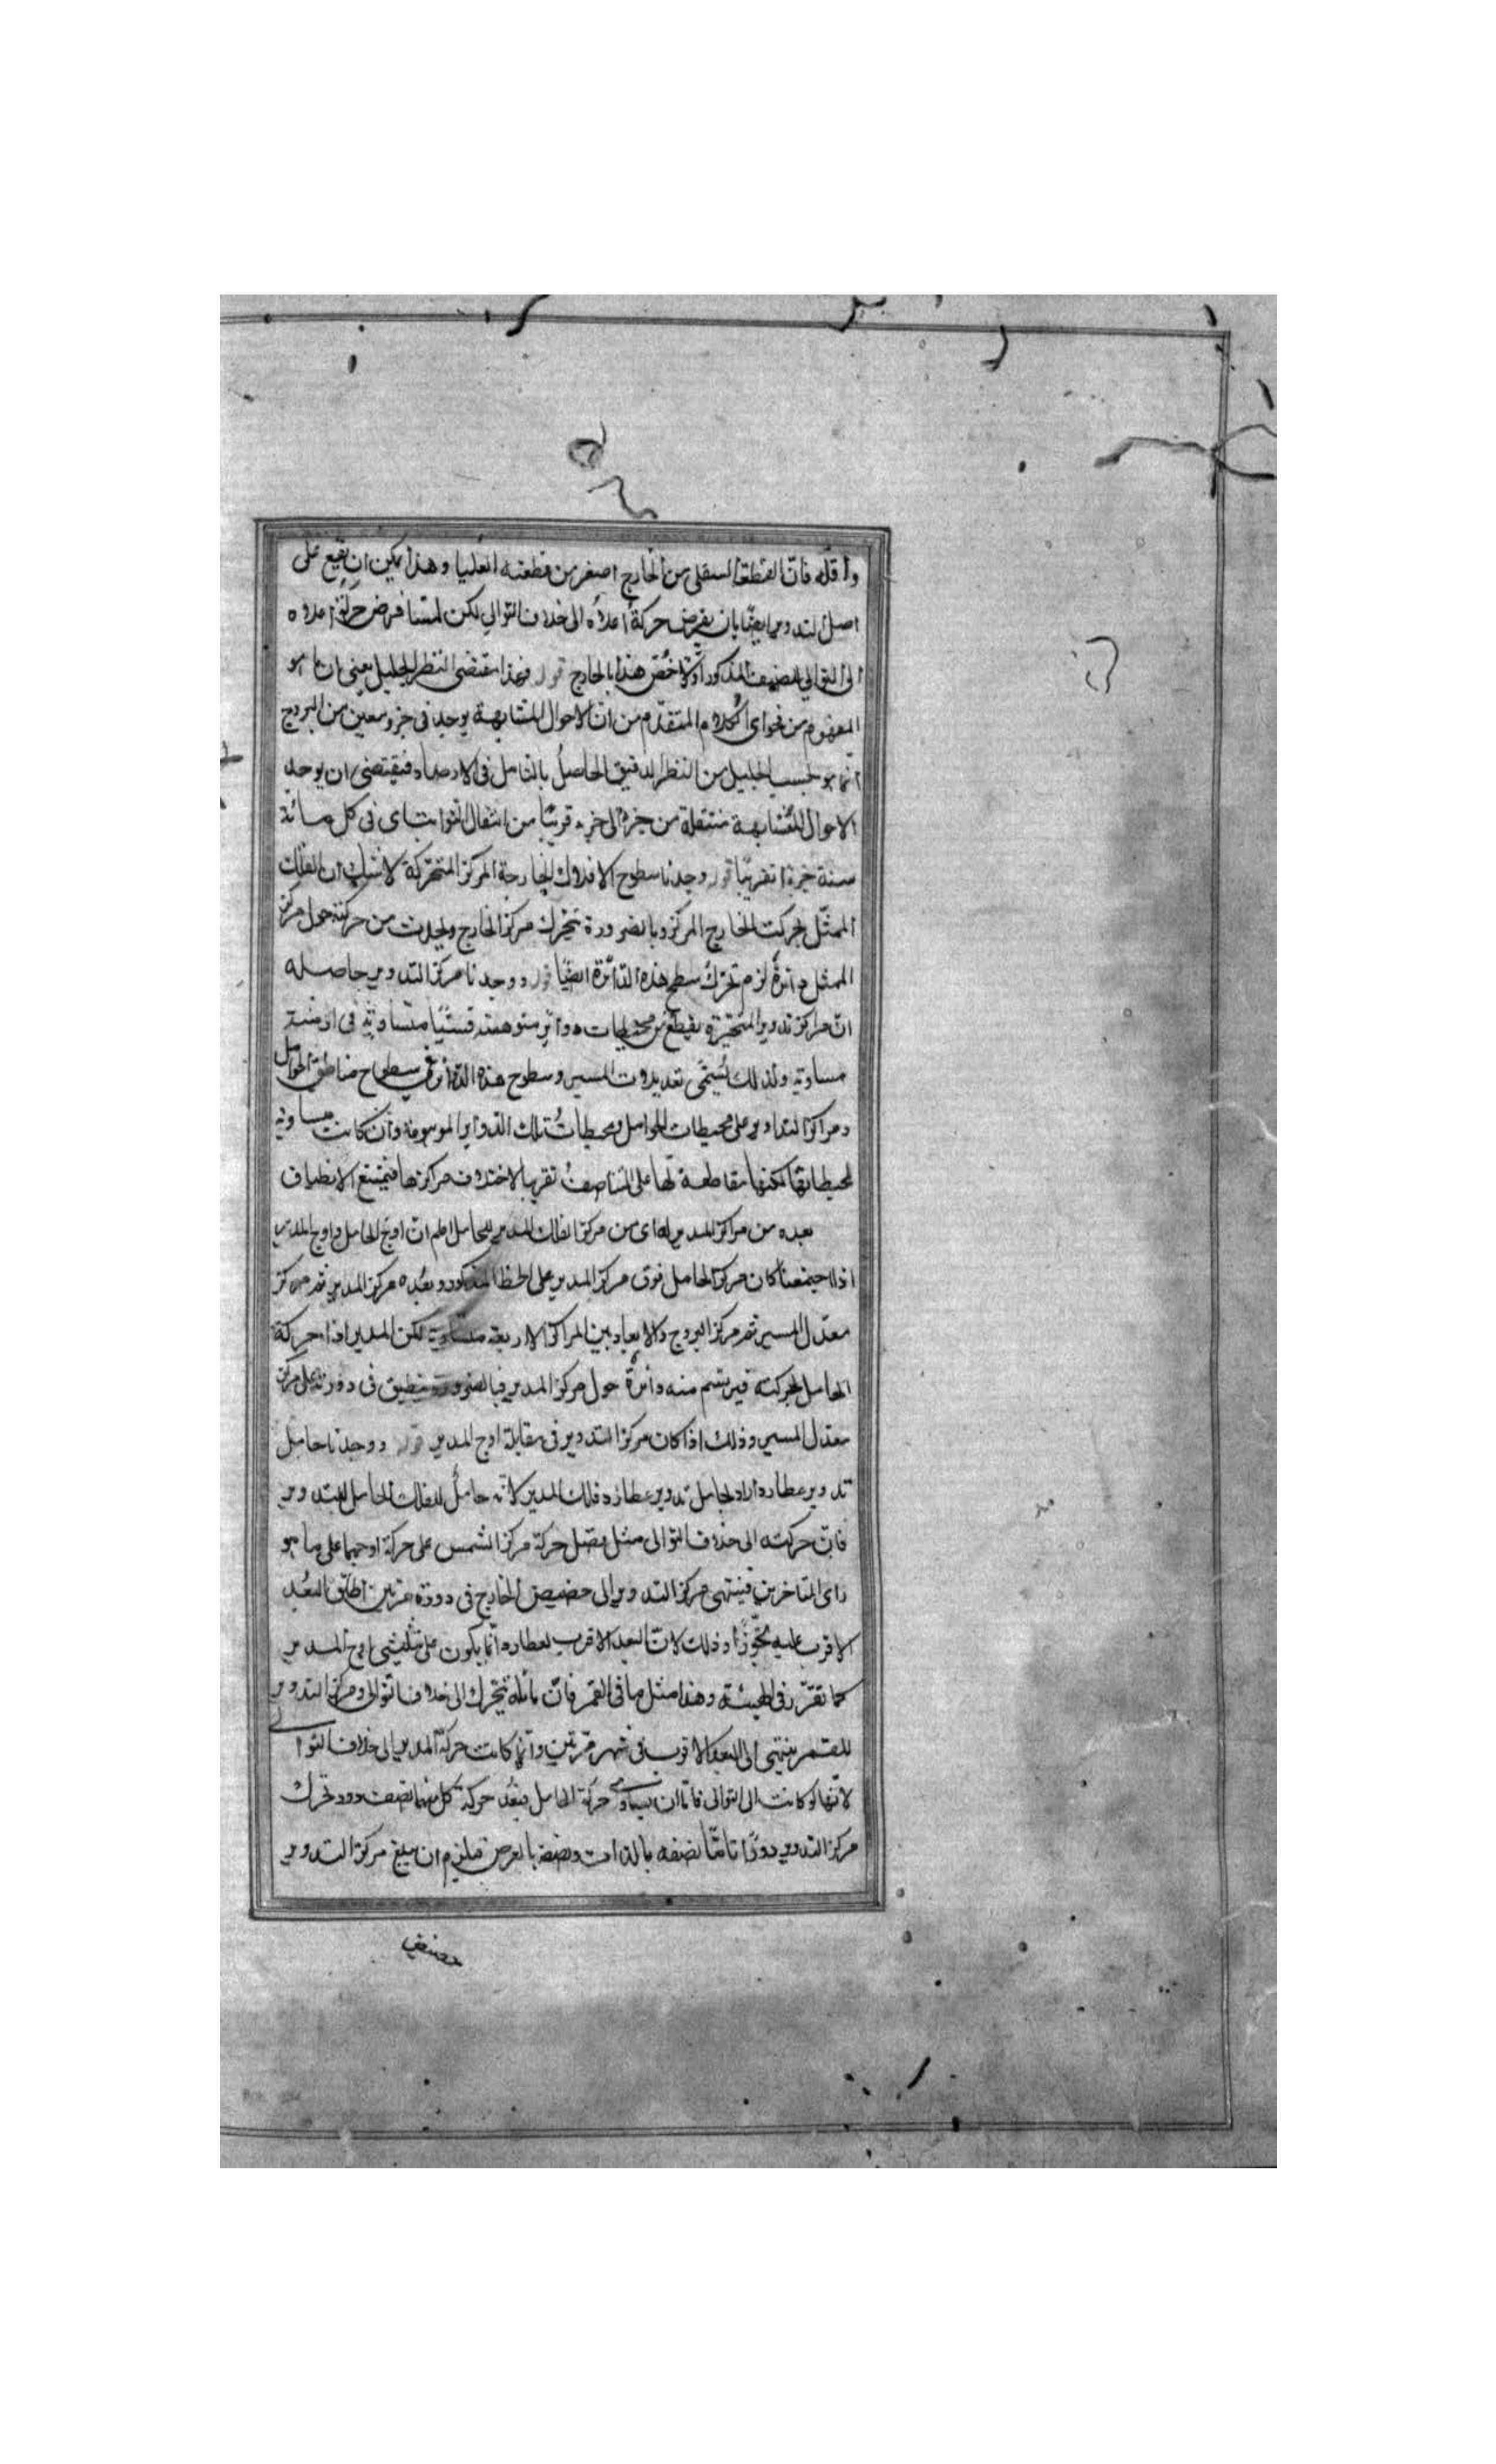 واقله فانّ القطعة السفلى من الخارج اصغر من قطعته العليا وهذا يمكن ان يقع على
اصل التدوير ايضًا بان يفرض حركة اعلاه الى خلاف التوالي لكن لمّا فرض حركة اعلاه
الى التوالي المذكور اوّلا خصّ هذا بالخارج قوله فهذا مقتضى النظر الجليل يعني ان ما هو
المفهوم من فحواى الكلام المتقدّم من انّ الاحوال المتشابهة يوجد في جزو معين من البروج
انّما هو بحسب الجليل من النظر الدقيق الحاصل بالتامل في الارصاد فيقتضى ان يوجد
الاحوال المتشابهة منتقلة من جزء الى جزء قريبًا من انتقال الثوابت اى في كل مائة
سنة جزءا تقريبًا قوله وجدنا سطوح الافلاك الخارجة المركز المتحركة لانّ الفلك
الممثّل يحرك الخارج المركز وبالضرورة يتحرك مركز الخارج ويحدث من حركته حول مركز
الممثل دائرة لزم تحرك سطح هذه الدائرة ايضًا قوله ووجدنا مركز التدوير حاصله
انّ مراكز تدوير المتحيّرة يقطع من محيطات دوائر متوهمة قسيّا متساوية في ازمنة
مساوية ولذلك يسمّى تعديلات المسير وسطوح هذه الدوائر في سطوح مناطق الحوامل
ومراكز التداوير على محيطات الحوامل ومحيطات تلك الدوائر الموسومة وان كانت مساوية
لمحيطاتها لكنها مقاطعة لها على التناصف تقريبا لاختلاف مراكزها فيمتنع الانطباق
بعده من مراكز المدير له اى من مركز الفلك المدير للحامل اعلم انّ اوج الحامل واوج المدير
اذا اجتمعنا كان مركز الحامل فوق مركز المدير على الخط المذكور وبعده مركز المدير ثم مركز
معدل المسير ثم مركز البروج والابعاد بين المراكز الاربعة متساوية لكن المدير اذا حركة
الحامل بحركته فيرتسم منه دائرة حول مركز المدير فبالضرورة ينطبق في دورته على مركز
معدل المسير وذلك اذا كان مركز التدوير في مقابلة اوج المدير قوله ووجدنا حامل
تدوير عطارد اراد بحامل تدوير عطارد فلك المدير لانّه حامل للفلك الحامل للتدوير
فانّ حركته الى خلاف التوالى مثل فضل حركة مركز الشمس على حركة اوجها على ما هو
راى المتاخرين فينتهى مركز التدوير الى حضيض الخارج في دورة مرتين اطلق البعد
الاقرب عليه تجوّزًا وذلك لانّ البعد الاقرب لعطارد انّما يكون على تثليثي اوج المدير
كما تقرّر في الهيئة وهذا مثل ما في القمر فانّ مائله يتحرك الى خلاف التوالى ومركز التدوير
للقمر ينتهى الى البعد الاقرب في شهر مرّتين وانّما كانت حركة المدير الى خلاف التوالى
لانّها لو كانت الى التوالى فامّا ان يساوى حركة الحامل فبعد حركة كل منهما نصف دور تحرك
مركز التدوير دورًا تامًّا نصفه بالذات ونصفه بالعرض فيلزم ان يبلغ مركز التدوير